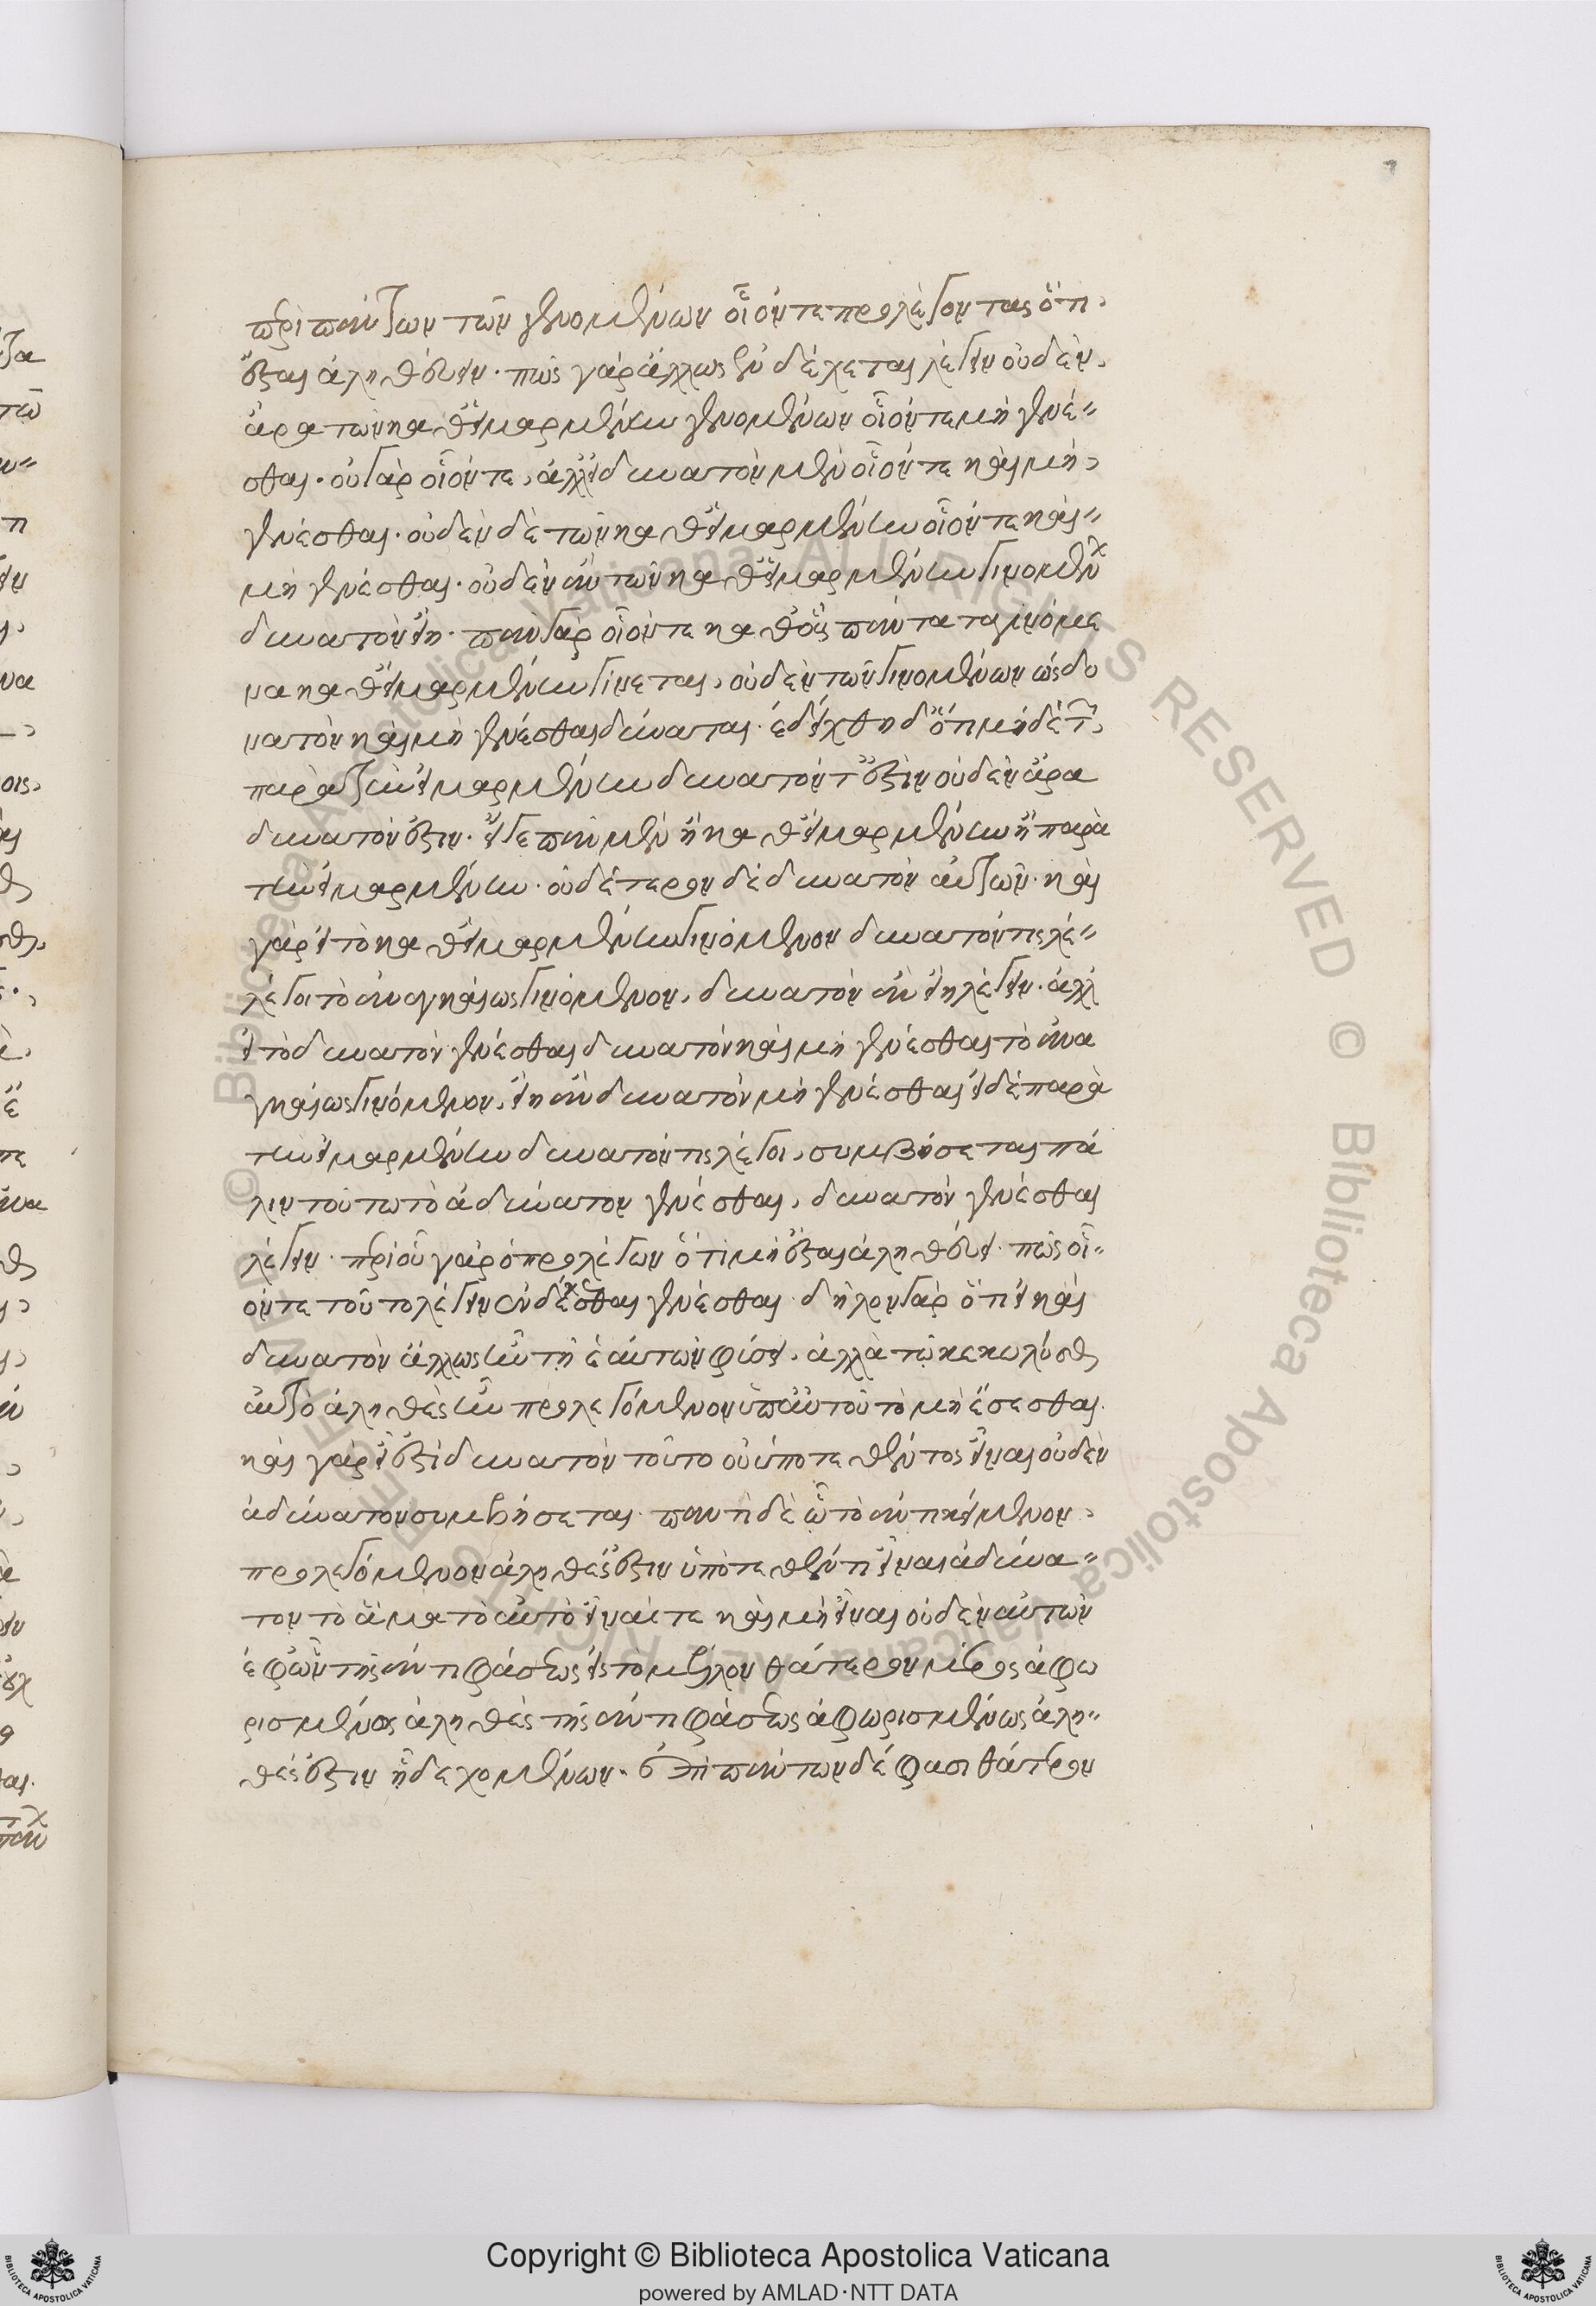 περὶ πάντων τῶν γενομένων οἷόν τε προλέγοντας ὅτι
ἔσται ἀληθεύειν. πῶς γὰρ ἄλλως ἐνδέχεται λέγειν οὐδὲν
ἄρα τῶν καθ' εἱμαρμένην γενομένων οἷόν τε μὴ γενέ=
σθαι. οὐ γὰρ οἷόν τε, ἀλλ' εἰ δυνατὸν μὲν οἷόν τε καὶ μὴ
γενέσθαι. οὐδὲν δὲ τῶν καθ' εἱμαρμένην οἷόν τε καὶ=
μὴ γενέσθαι. οὐδὲν ἂν τῶν καθ' εἱμαρμένην γινομένων
δυνατὸν εἴη. πᾶν γὰρ οἷόν τε καθ' οὓς πάντα τὰ γινόμε
να καθ' εἱμαρμένην γίνεται, οὐδὲν τῶν γινομένων ὡς δυ
νατὸν καὶ μὴ γενέσθαι δύναται. ἐδείχθη δ' ὅτι μηδὲ τῶν
παρὰ τὴν εἱμαρμένην δυνατόν τ' ἐστὶν οὐδὲν ἄρα
δυνατόν ἐστιν. εἴ γε πᾶν μὲν ἢ καθ' εἱμαρμένην ἢ παρὰ
τὴν εἱμαρμένην. οὐδέτερον δὲ δυνατὸν αὐτῶν. καὶ
γὰρ εἰ τὸ καθ' εἱμαρμένην γινόμενον δυνατόν τις λέ=
λέγοι τὸ ἀναγκαίως γινόμενον, δυνατὸν ἂν εἴη λέγειν. ἀλλ'
εἰ τὸ δυνατὸν γενέσθαι δυνατὸν καὶ μὴ γενέσθαι τὸ ἀνα
γκαίως γινόμενον, εἴη ἂν δυνατὸν μὴ γενέσθαι εἰ δὲ παρὰ
τὴν εἱμαρμένην δυνατόν τις λέγοι, συμβήσεται πά
λιν τούτω τὸ ἀδύνατον γενέσθαι, δυνατὸν γενέσθαι
λέγειν. περὶ οὗ γὰρ ὁ προλέγων ὅτι μὴ ἔσται ἀληθεύει. πῶς οἷ=
όν τε τοῦτο λέγειν ἐνδέχεσθαι γενέσθαι. δῆλον γὰρ ὅτι εἰ καὶ
δυνατὸν ἄλλως ἦν τῇ ἑαυτῶν φύσει. ἀλλὰ τῷ κεκωλύσθαι
αὐτὸ ἀληθὲς ἦν προλεγόμενον ὑπ' αὐτοῦ τὸ μὴ ἔσεσθαι.
καὶ γὰρ εἰ ἐστὶ δυνατὸν τοῦτο οὗ ὑποτεθέντος εἶναι οὐδὲν
ἀδύνατον συμβήσεται. παντὶ δὲ ᾧ τὸ ἀντικείμενον
προλεγόμενον ἀληθές ἐστιν ὑποτεθέντι εἶναι ἀδύνα=
τον τὸ ἅμα τὸ αὐτὸ εἶναί τε καὶ μὴ εἶναι οὐδὲν αὐτῶν
ἐφ' ὧν τῆς ἀντιφάσεως εἰς τὸ μέλλον θάτερον μέρος ἀφω
ρισμένος ἀληθὲς τῆς ἀντιφάσεως ἀφωρισμένως ἀλη=
θές ἐστιν ἐνδεχομένων. ἐπὶ πάντων δέ φασι θάτερον